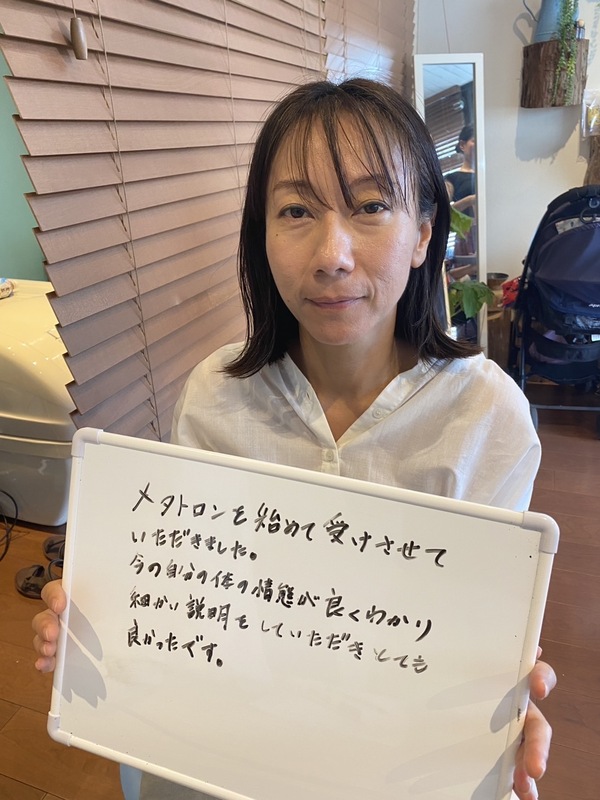 メタトロンを始めて受けさせて
いただきました。
今の自分の体の情態が良くわかり
細かい説明をしていただきとても
良かったです。